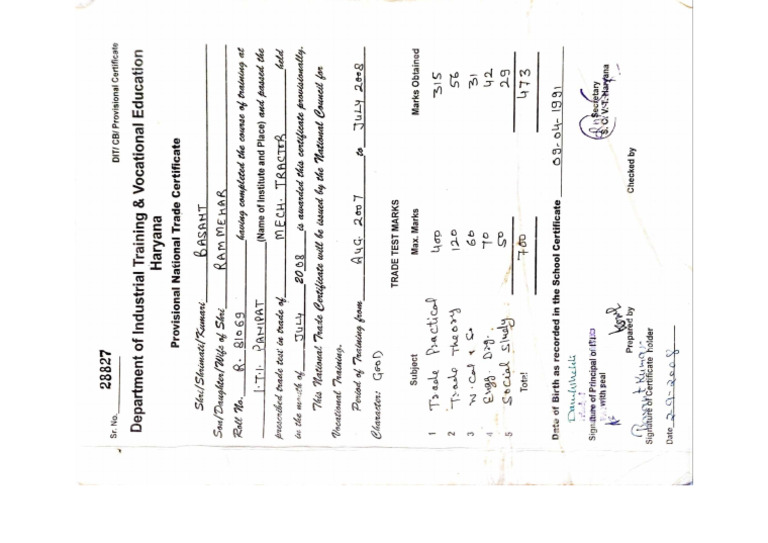 DIT/ CB/ Provisional Certificate
Sr. No. 28827
Department of Industrial Training & Vocational Education
Haryana
Provisional National Trade Certificate
Shri/Shrimati/Kumari BASANT
Son/Daughter/Wife of Shri RAMMEHAR
Roll No. R. 81069 having completed the course of training at
I.T.I. PANIPAT (Name of Institute and Place) and passed the
prescribed trade test in trade of MECH. TRACTOR held
in the month of JULY 2008 is awarded this certificate provisionally.
This National Trade Certificate will be issued by the National Council for
Vocational Training.
Period of Training from AUG. 2007 to JULY 2008
Character: GOOD
TRADE TEST MARKS
Subject Max. Marks Marks Obtained
1 Trade Practical 400 315
2 Trade Theory 120 56
3 W. Cal & Sc. 60 31
4 Engg. Drg. 70 42
5 Social Study 50 29
Total 700 473
Date of Birth as recorded in the School Certificate 09-04-1991
Signature of Principal of
with seal
Prepared by
Checked by
Secretary
S.C.V.T. Haryana
Signature of Certificate holder
Date 2-9-2008